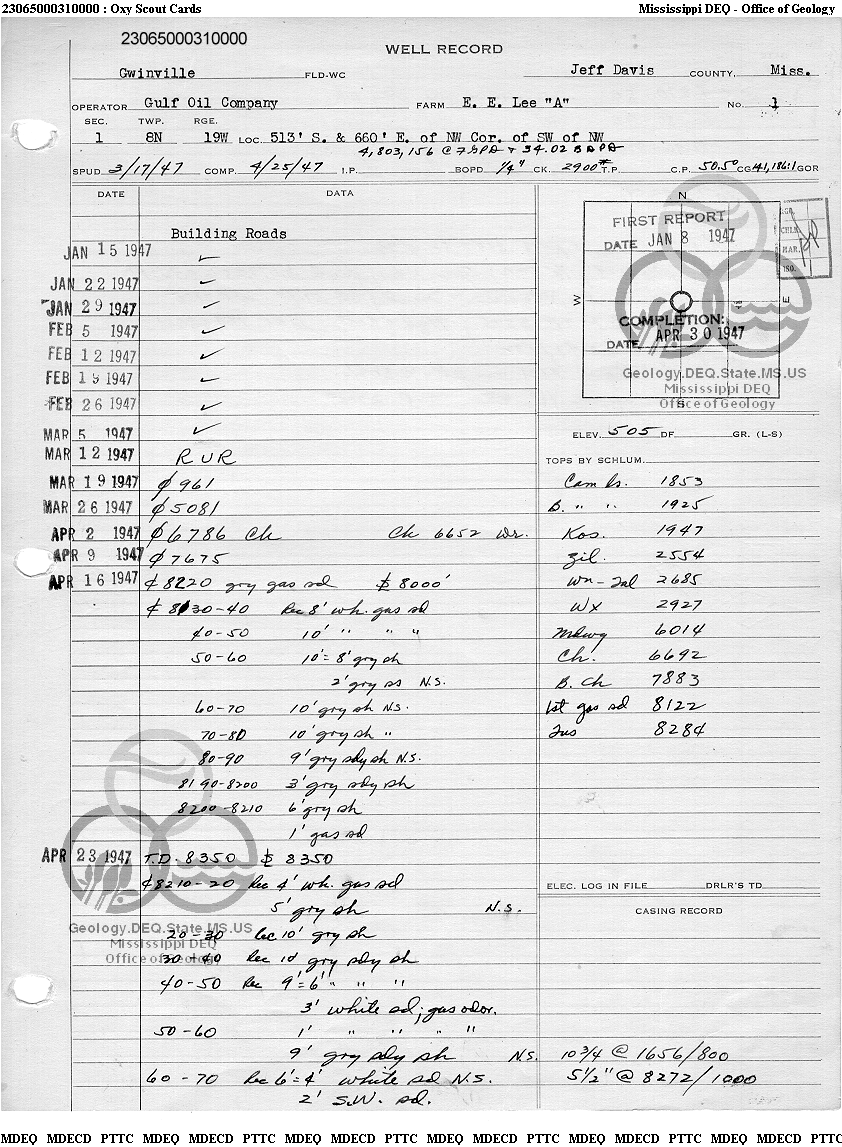 23065000310000 : Oxy Scout Cards Mississippi DEQ - Office of Geology
23065000310000
WELL RECORD
Gwinville FLD-WC Jeff Davis COUNTY, Miss.
OPERATOR Gulf Oil Company FARM E. E. Lee "A" No. 1
SEC. TWP. RGE.
1 8N 19W LOC. 513' S. & 660' E. of NW Cor. of SW of NW
4,803,156 @ 7 GPD + 34.02 BDPD
SPUD 3/17/47 COMP. 4/25/47 I.P. BOPD 1/4" CK. 2900# T.P. C.P. 50.5° CG 141,186:1 GOR
DATE DATA
Building Roads
JAN 15 1947 ✓
JAN 22 1947 ✓
JAN 29 1947 ✓
FEB 5 1947 ✓
FEB 12 1947 ✓
FEB 19 1947 ✓
FEB 26 1947 ✓
MAR 5 1947 ✓
MAR 12 1947 RUR
MAR 19 1947 ₵ 961
MAR 26 1947 ₵ 5081
APR 2 1947 ₵ 6786 Ch Ch 6652 Wr.
APR 9 1947 ₵ 7675
APR 16 1947 ₵ 8220 gry gas sd $ 8000'
₵ 8130-40 Rec 8' wh. gas sd
40-50 10' " " "
50-60 10' = 8' gry sh
2' gry ss N.S.
60-70 10' gry sh N.S.
70-80 10' gry sh "
80-90 9' gry sdy sh N.S.
8190-8200 3' gry sdy sh
8200-8210 6' gry sh
1' gas sd
APR 23 1947 T.D. 8350 $ 8350
₵ 8210-20 Rec 4' wh. gas sd
5' gry sh N.S.
20-30 Rec 10' gry sh
30-40 Rec 10' gry sdy sh
40-50 Rec 9' = 6' " " "
3' white sd; gas odor.
50-60 1' " " " "
9' gry sdy sh N.S.
60-70 Rec 6' = 4' white sd N.S.
2' S.W. sd.
N
W E
S
FIRST REPORT
DATE JAN 8 1947
COMPLETION:
DATE APR 30 1947
GR.
CHLK.
MAR.
ISO.
Geology.DEQ.State.MS.US
Mississippi DEQ
Office of Geology
ELEV. 505 DF GR. (L-S)
TOPS BY SCHLUM.
Cam ls. 1853
B. " " 1925
Kos. 1947
Zil. 2554
Wn-Tal 2685
Wx 2927
Mdwy 6014
Ch. 6692
B. Ch 7883
1st gas sd 8122
Tus 8284
ELEC. LOG IN FILE DRLR'S TD
CASING RECORD
10 3/4 @ 1656/800
5 1/2" @ 8272/1000
Geology.DEQ.State.MS.US
Mississippi DEQ
Office of Geology
MDEQ MDECD PTTC MDEQ MDECD PTTC MDEQ MDECD PTTC MDEQ MDECD PTTC MDEQ MDECD PTTC MDEQ MDECD PTTC